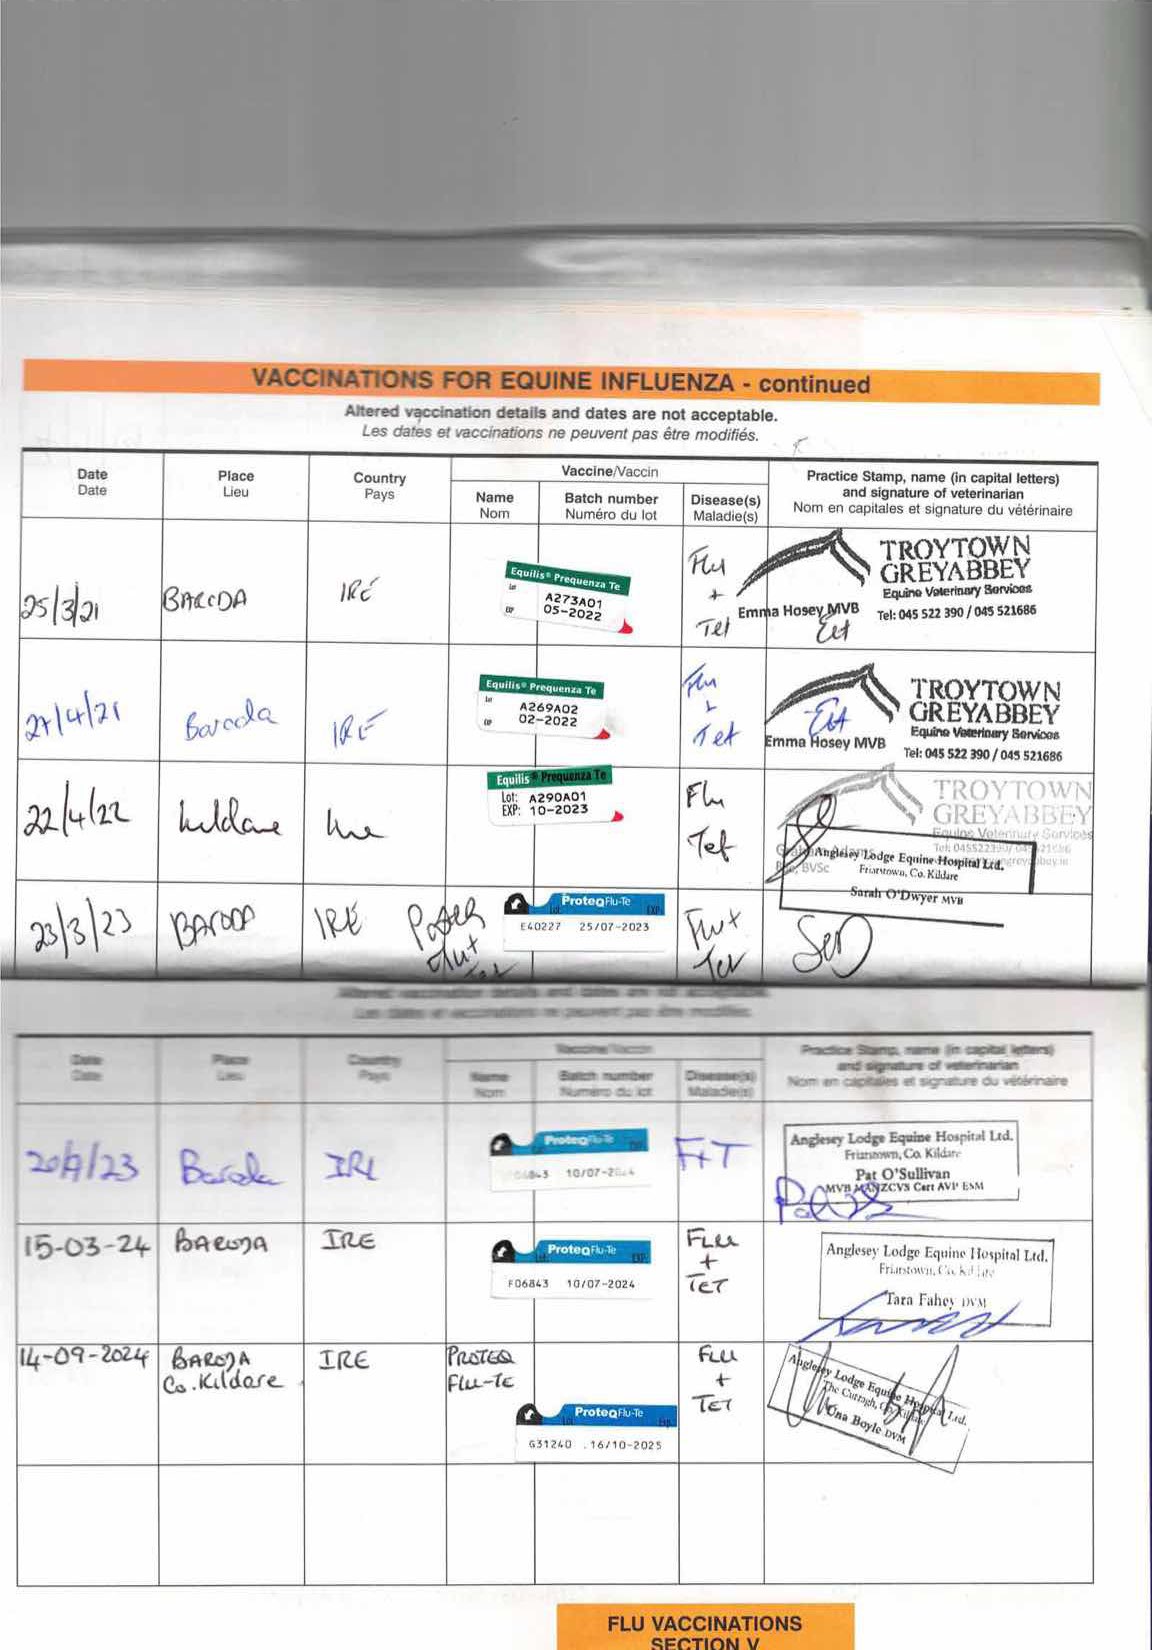 VACCINATIONS FOR EQUINE INFLUENZA - continued
Altered vaccination details and dates are not acceptable.
Les dates et vaccinations ne peuvent pas être modifiés.
Date Place Country Vaccine/Vaccin Practice Stamp, name (in capital letters)
Date Lieu Pays and signature of veterinarian
Name Batch number Disease(s) Nom en capitales et signature du vétérinaire
Nom Numéro du lot Maladie(s)
25/3/21 BARODA IRE Equilis® Prequenza Te Flu TROYTOWN
A273A01 + GREYABBEY
05-2022 Tet Equine Veterinary Services
Emma Hosey MVB Tel: 045 522 390 / 045 521686
27/4/21 Baroda IRE Equilis® Prequenza Te Flu TROYTOWN
A269A02 GREYABBEY
02-2022 Tet Equine Veterinary Services
Emma Hosey MVB Tel: 045 522 390 / 045 521686
22/4/22 Kildare Ire Equilis® Prequenza Te Flu TROYTOWN
Lot: A290A01 GREYABBEY
EXP: 10-2023 Tet Equine Veterinary Services
BVSc
Anglesey Lodge Equine Hospital Ltd.
Friarstown, Co. Kildare
Sarah O'Dwyer MVB
23/3/23 BARODA IRE Proteq Flu+ ProteqFlu-Te Flu+
E40227 25/07-2023 Tet
Altered vaccination details and dates are not acceptable.
Les dates et vaccinations ne peuvent pas être modifiés.
Date Place Country Vaccine/Vaccin Practice Stamp, name (in capital letters)
Date Lieu Pays and signature of veterinarian
Name Batch number Disease(s) Nom en capitales et signature du vétérinaire
Nom Numéro du lot Maladie(s)
Baroda IRL ProteqFlu-Te F+T Anglesey Lodge Equine Hospital Ltd.
F06843 10/07-2024 Friarstown, Co. Kildare
Pat O'Sullivan
MVB MANZCVS Cert AVP ESM
15-03-24 BARODA IRE ProteqFlu-Te FLU Anglesey Lodge Equine Hospital Ltd.
F06843 10/07-2024 + Friarstown, Co. Kildare
TET Tara Fahey DVM
14-09-2024 BARODA IRE PROTEQ FLU Anglesey Lodge Equine Hospital Ltd.
Co. Kildare FLU-TE + The Curragh, Co. Kildare
ProteqFlu-Te TET Una Boyle DVM
G31240 . 16/10-2025
FLU VACCINATIONS
SECTION V